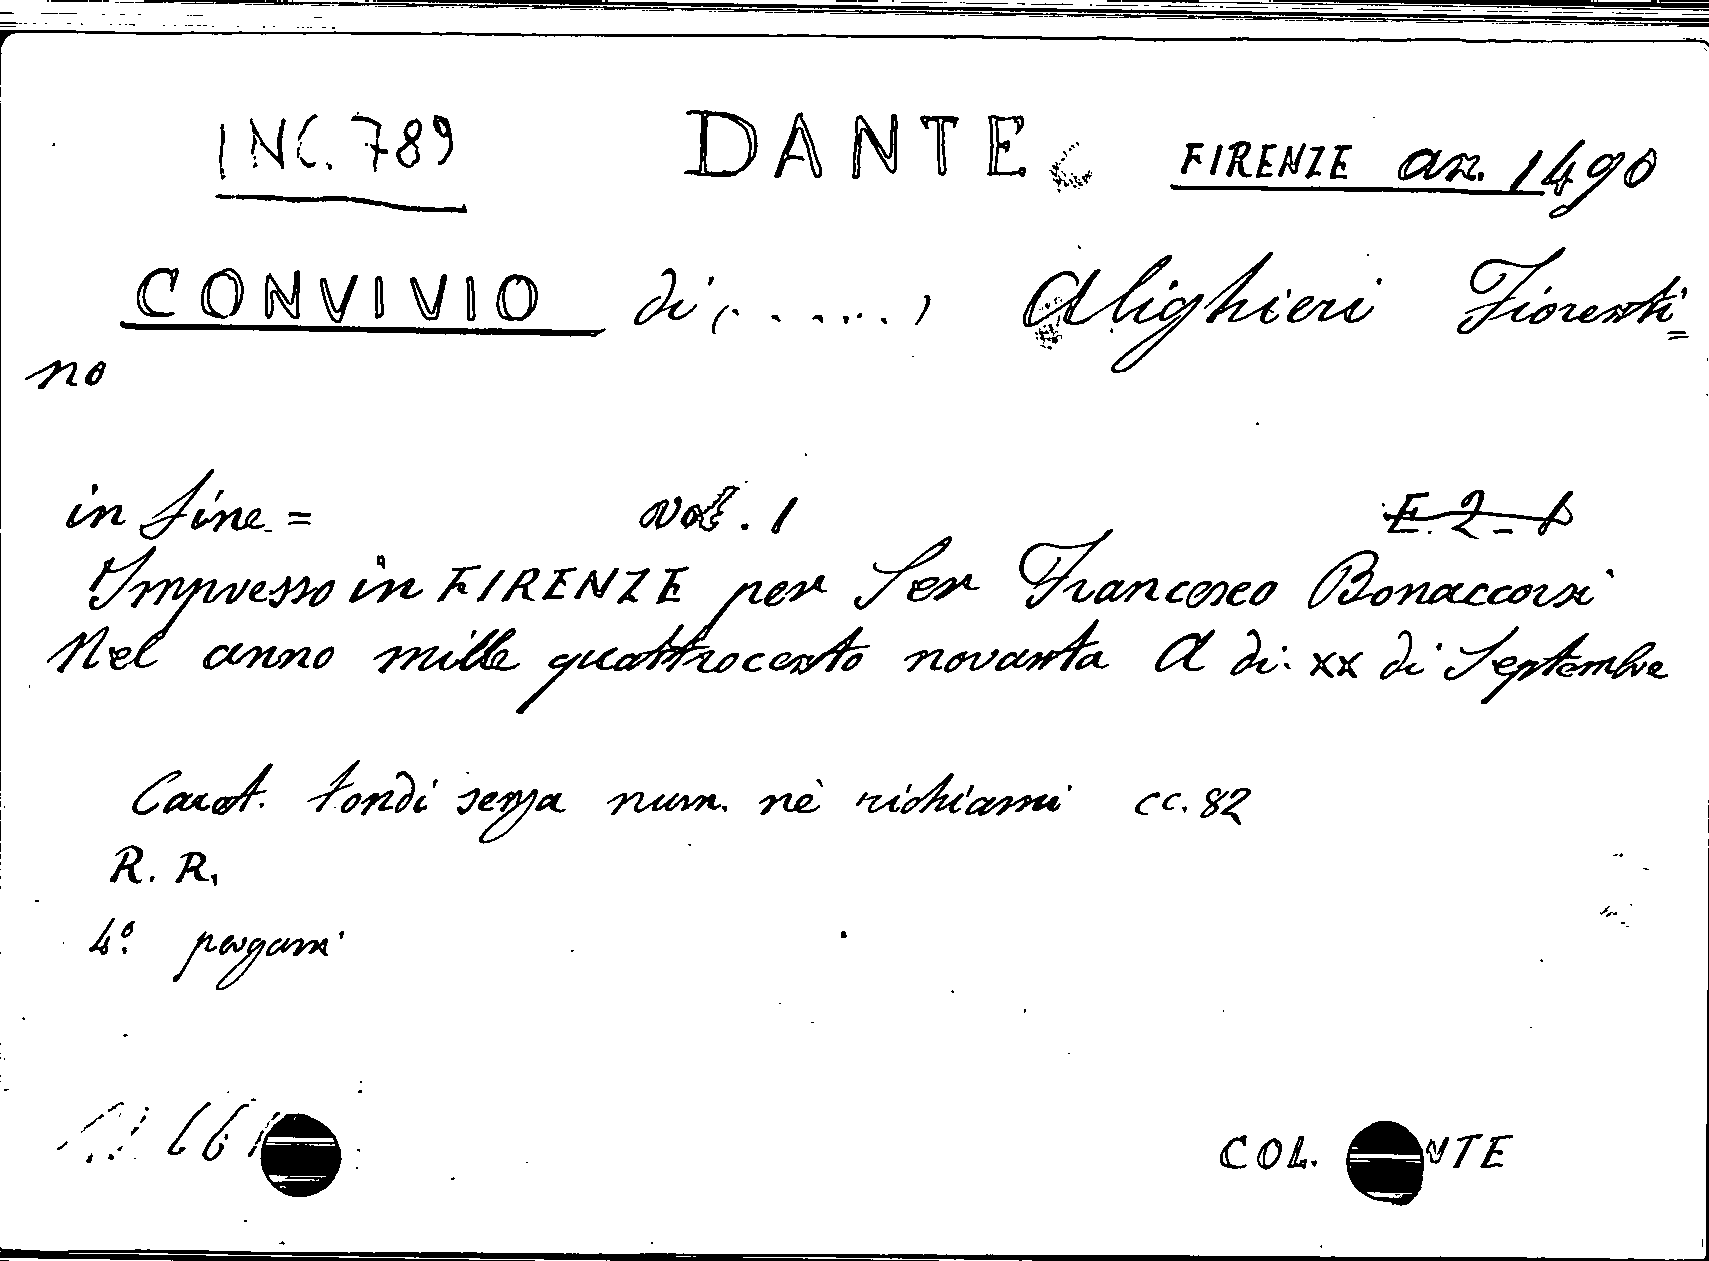 INC. 789 DANTE FIRENZE an. 1490
CONVIVIO di (.....) Alighieri Fiorenti=
no
in fine = vol. 1 E. 2-1
Impresso in FIRENZE per Ser Francesco Bonaccorsi
Nel anno mille quattrocento novanta A di: xx di Septembre
Carat. tondi senza num. nè richiami cc. 82
R. R.
4º pergam.
COL. NTE